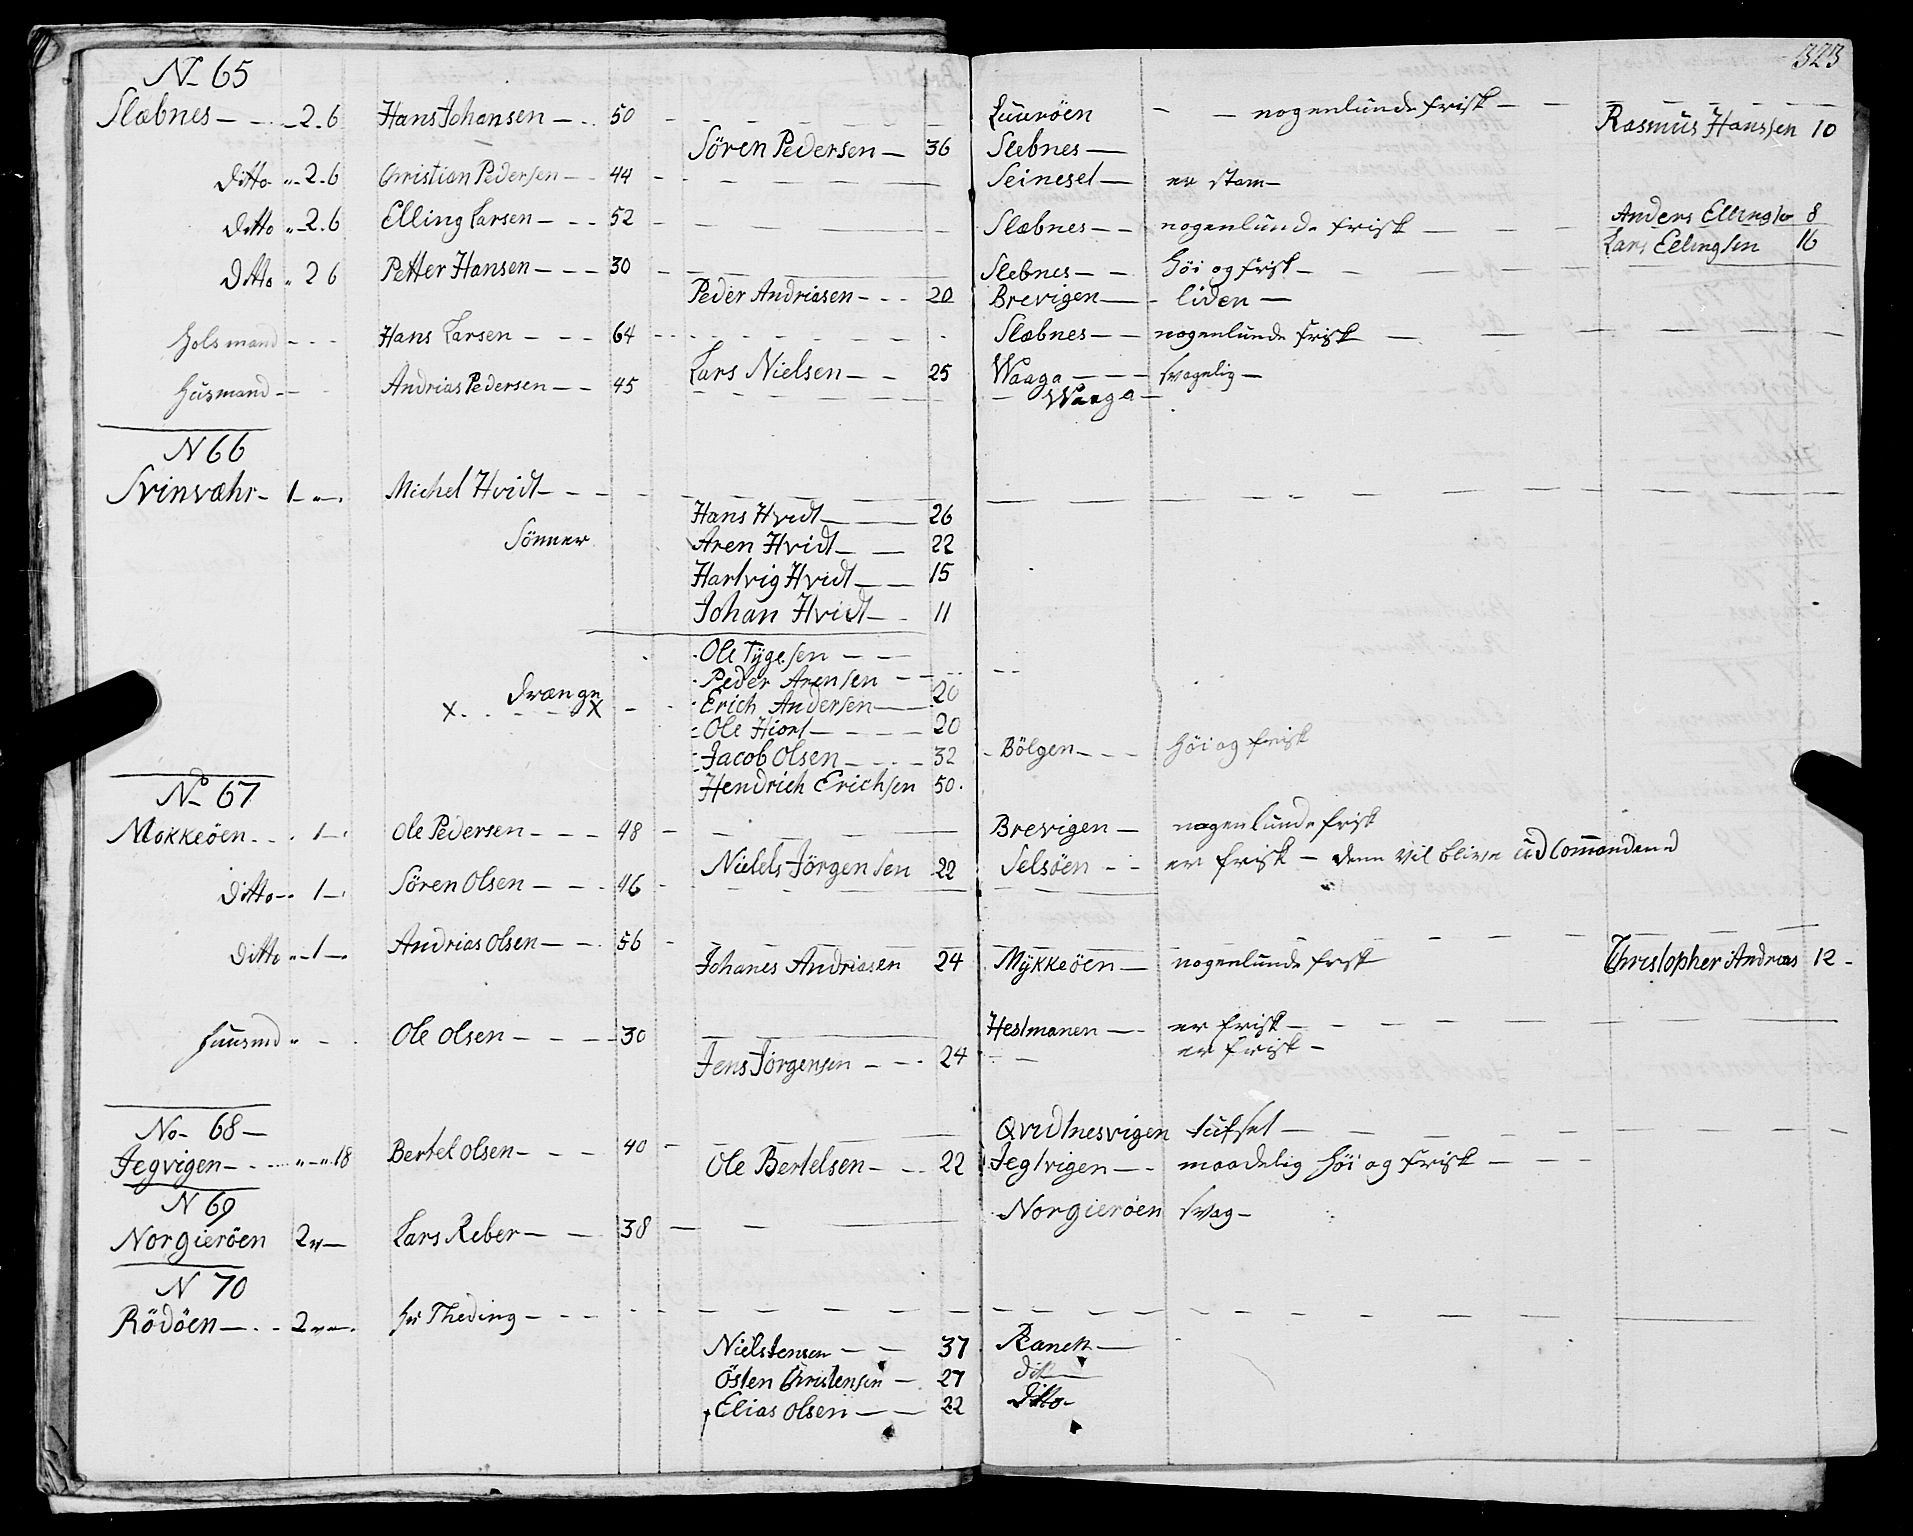 323
N 65
Slæbnes - - - 2. 6 Hans Johansen - - 50 - - - Luuröen - - nogenlunde frisk - - Rasmus Hanssen 10
Sören Pedersen - 36 Slebnes -
Ditto - 2. 6 Christian Pedersen - - 44 - - - Seinesel - er stam -
Ditto - 2. 6 Elling Larsen - - - 52 - - - Slæbnes - - nogenlunde frisk - - - Anders Ellingsø 8
Lars Ellingsen 16
Ditto " 2 6 Petter Hansen - - - 30 - - - Slebnes - - höi og frisk - -
Peder Andriasen - - - 20 Brevigen - - liden -
Holsmand - - - Hans Larsen - - - 64 - - - Slæbnes - - nogenlunde frisk - -
Lars Nielsen - - 25 Waaga - - - svagelig -
Husmand - - Andrias Pedersen - - 45 - - - Waaga -
N 66
Svinvæhr - 1 " - Michel Hvidt - - -
Hans Hvidt - - 26
Sönner Aren Hvidt - - 22
Hartvig Hvidt - - 15
Johan Hvidt - - 11
Ole Tygesen - -
Peder Arensen - - -
Drænge Erich Andersen - 20
X - - - X - - Ole Hiort - - - - 20
Jacob Olsen - - - 32 - Bölgen - - - höi og frisk
Hendrich Erichsen 50.
No 67
Mokkeöen - - 1 - Ole Pedersen - - - 48 - - - Brevigen - nogenlunde frisk
Nields Jörgensen 22 Selsöen - - er frisk - denn vil blive udCommendered
Ditto - " 1 - Sören Olsen - - - 46 - - -
Ditto " - 1 - Andrias Olsen - - 56 - - -
Johanes Andriasen 24 Mÿkkeöen - nogenlunde frisk Christopher Andrias 12 -
Huusmd " - Ole Olsen - - - - 30 - Hestmanen - - er frisk - - -
Jens Jörgensen - - - 24 - - er frisk -
No - 68 -
Qvidtnesvigen tufset -
Jegvigen - - - " - " 18 Bertel Olsen - - - 40 -
Ole Bertelsen - - - 22 Jegtvigen - - maadelig höi og frisk - - -
N 69
Norgieröen svag -
Norgieröen 2 " - Lars Reber - - 38 -
N 70
Rödöen - - - 2 " - . Hr Theding - - -
Niels Jensen - - 37 Ranen -
Östen Christensen - 27 dito
Elias Olsen - - 22 Ditto -